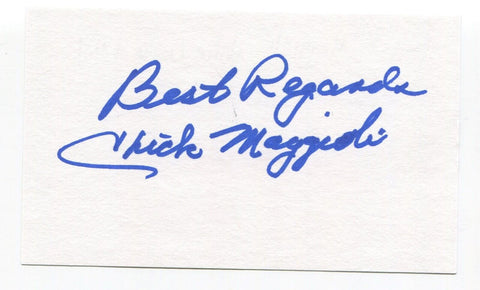 Best Regards
Chick Maggioli